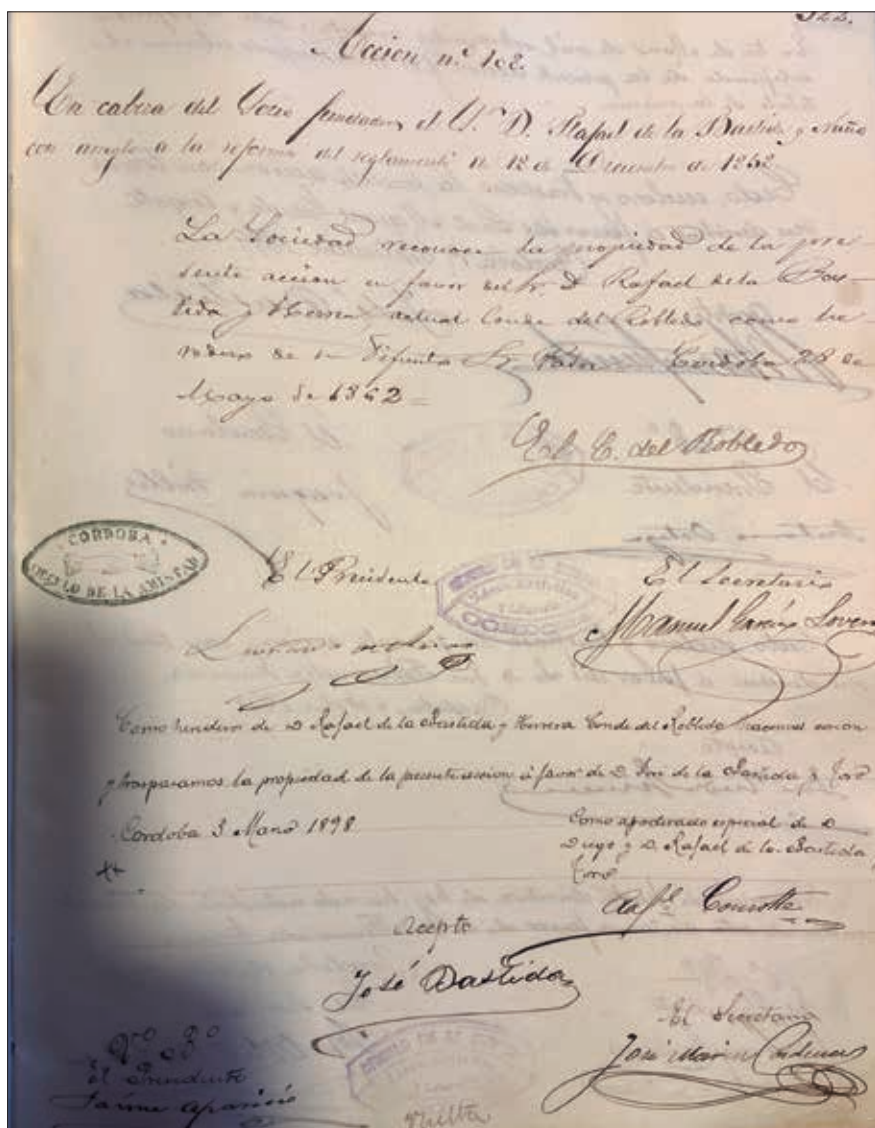 322.
Accion nº 102.
En cabeza del Socio fundador el Sr. D. Rafael de la Bastida y Nuño
con arreglo a la reforma del reglamento de 12 de Diciembre de 1852
La Sociedad reconoce la propiedad de la pre-
sente accion en favor del Sr. D Rafael de la Bas-
tida y Herrera actual Conde del Robledo como he-
redero de su difunto Sr. Padre Cordoba 28 de
Mayo de 1862 =
El C. del Robledo
CORDOBA
CIRCULO DE LA AMISTAD
El Presidente
El Secretario
Manuel García Lovera
Como herederos de D Rafael de la Bastida y Herrera Conde del Robledo hacemos cesion
y traspasamos la propiedad de la presente accion á favor de D. José de la Bastida y Toro
Cordoba 3 Marzo 1898
Como apoderado especial de D
Diego y D. Rafael de la Bastida
Toro
Rafl
Acepto
José Bastida
Vº Bº
El Presidente
Jaime Aparicio
El Secretario
José Marin Cardenas
Vuelta